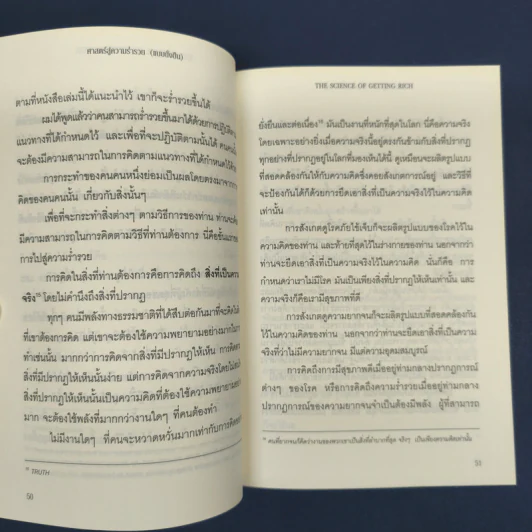 ศาสตร์สู่ความร่ำรวย (แบบยั่งยืน)
ตามที่หนังสือเล่มนี้ได้แนะนำไว้ เขาก็จะร่ำรวยขึ้นได้
ผมได้พูดแล้วว่าคนสามารถร่ำรวยขึ้นมาได้ด้วยการปฏิบัติตาม
แนวทางที่ได้กำหนดไว้ และเพื่อที่จะปฏิบัติตามนั้นได้
จะต้องมีความสามารถในการคิดตามแนวทางที่ได้กำหนดไว้
การกระทำของคนคนหนึ่งย่อมเป็นผลโดยตรงมาจาก
คิดของคนคนนั้น เกี่ยวกับสิ่งนั้นๆ
เพื่อที่จะกระทำสิ่งต่างๆ ตามวิธีการของท่าน
มีความสามารถในการคิดตามวิธีที่ท่านต้องการ นี่คือขั้นแรก
การไปสู่ความร่ำรวย
การคิดในสิ่งที่ท่านต้องการคือการคิดถึง สิ่งที่เป็นความ
จริง โดยไม่คำนึงถึงสิ่งที่ปรากฏ
ทุกๆ คนมีพลังทางธรรมชาติที่ได้สืบต่อกันมาที่จะคิดใน
ที่เขาต้องการคิด แต่เขาจะต้องใช้ความพยายามอย่างมาก
ทำเช่นนั้น มากกว่าการคิดจากสิ่งที่มีปรากฏให้เห็น การคิด
สิ่งที่มีปรากฏให้เห็นนั้นง่าย แต่การคิดจากความจริงโดยไม่
สิ่งที่ปรากฏให้เห็นนั้นเป็นความคิดที่ต้องใช้ความพยายาม
มาก จะต้องใช้พลังที่มากกว่างานใดๆ ที่คนต้องทำ
ไม่มีงานใดๆ ที่คนจะหวาดหวั่นมากเท่ากับการคิด
TRUTH
50
THE SCIENCE OF GETTING RICH
ยั่งยืนและต่อเนื่อง มันเป็นงานที่หนักที่สุดในโลก นี่คือความจริง
โดยเฉพาะอย่างยิ่งเมื่อความจริงนี้อยู่ตรงกันข้ามกับสิ่งที่ปรากฏ
ทุกอย่างที่ปรากฏอยู่ในโลกที่มองเห็นได้นี้ ดูเหมือนจะผลิตรูปแบบ
ที่สอดคล้องกันให้กับความคิดซึ่งคอยสังเกตการณ์อยู่ และวิธีที่
จะป้องกันได้ก็ด้วยการยึดเอาสิ่งที่เป็นความจริงไว้ในความคิด
เท่านั้น
การสังเกตดูโรคภัยไข้เจ็บก็จะผลิตรูปแบบของโรคไว้ใน
ความคิดของท่าน และท้ายที่สุดไว้ในร่างกายของท่าน นอกจากว่า
ท่านจะยึดเอาสิ่งที่เป็นความจริงไว้ในความคิด นั่นก็คือ การ
กำหนดว่าเราไม่มีโรค มันเป็นเพียงสิ่งที่ปรากฏให้เห็นเท่านั้น และ
ความจริงก็คือเรามีสุขภาพที่ดี
การสังเกตดูความยากจนก็จะผลิตรูปแบบที่สอดคล้องกัน
ไว้ในความคิดของท่าน นอกจากว่าท่านจะยึดเอาสิ่งที่เป็นความ
จริงที่ว่าไม่มีความยากจน มีแต่ความอุดมสมบูรณ์
การคิดถึงการมีสุขภาพดีเมื่ออยู่ท่ามกลางปรากฏการณ์
ต่างๆ ของโรค หรือการคิดถึงความร่ำรวยเมื่ออยู่ท่ามกลาง
ปรากฏการณ์ของความยากจนจำเป็นต้องมีพลัง ผู้ที่สามารถ
51